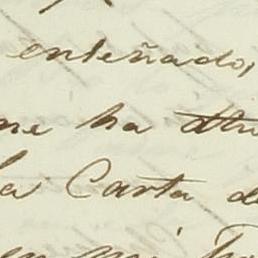 enteñado,
me ha
la Carta de
en mi